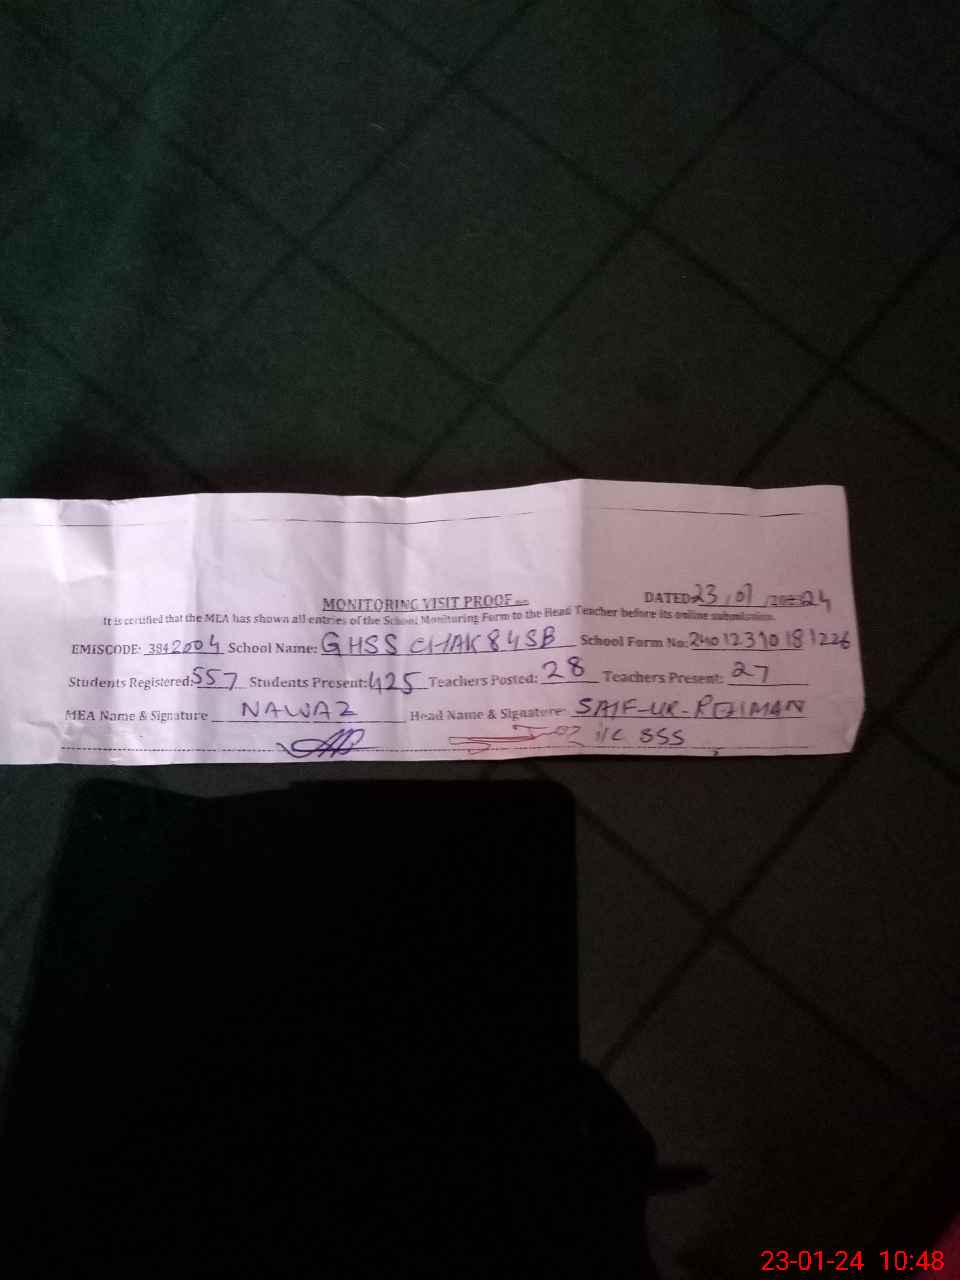 MONITORING VISIT PROOF
DATED 23/01/2024
It is certified that the MEA has shown all entries of the School Monitoring Form to the Head Teacher before its online submission.
EMISCODE: 3842004 School Name: GHSS CHAK 84SB School Form No: 24012310181226
Students Registered: 557 Students Present: 425 Teachers Posted: 28 Teachers Present: 27
MEA Name & Signature NAWAZ Head Name & Signature: SAIF-UR-REHMAN
i/c SSS
23-01-24 10:48